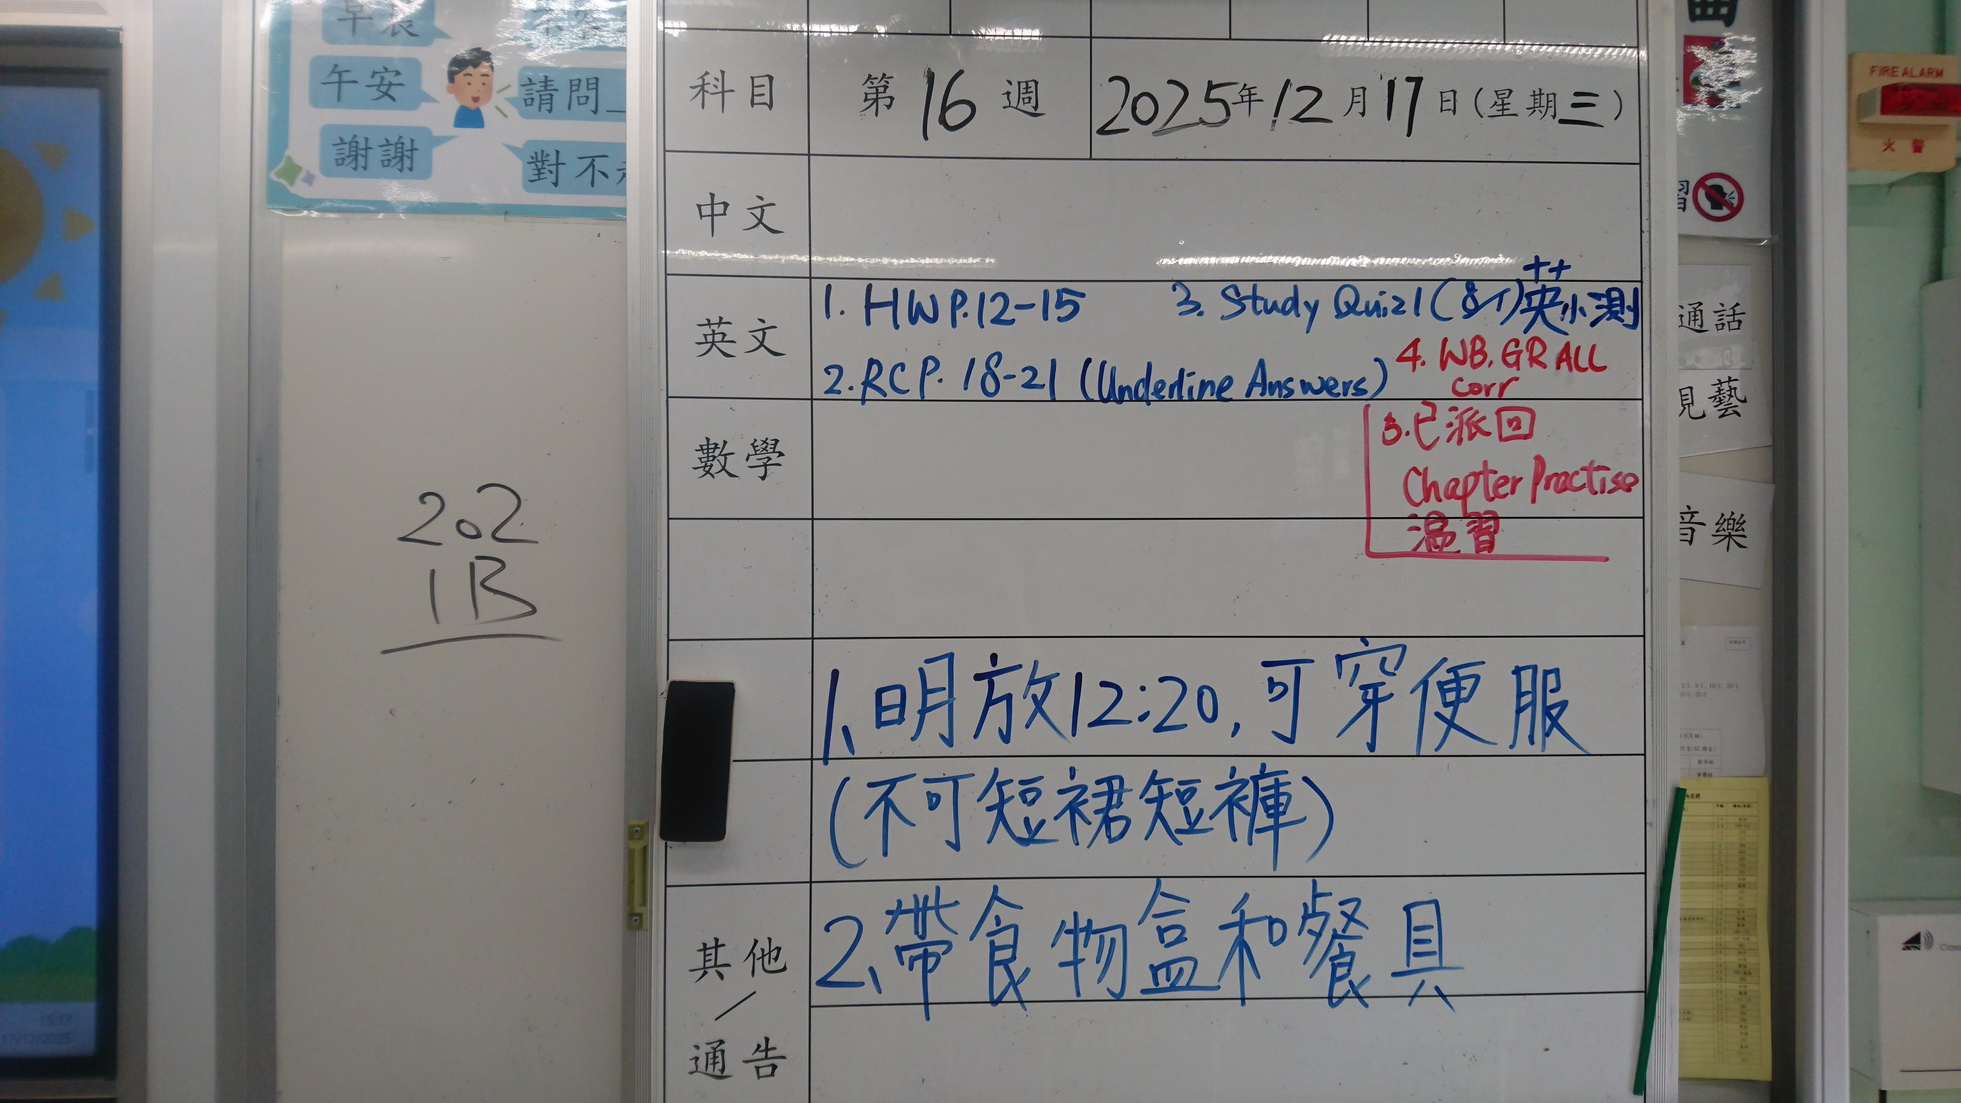 早晨
午安
謝謝
請問
對不
202
1B
科目 第16週 2025年12月17日(星期三)
中文
英文
1. HW P.12-15 3. Study Quiz 1 英小測
2. RC P. 18-21 (Underline Answers) 4. WB, GR ALL
corr
數學
5. 已派回
Chapter Practise
溫習
1、明放12:20,可穿便服
(不可短裙短褲)
其他
／
通告
2、帶食物盒和餐具
習
通話
視藝
音樂
FIRE ALARM
火警
17/12/2025